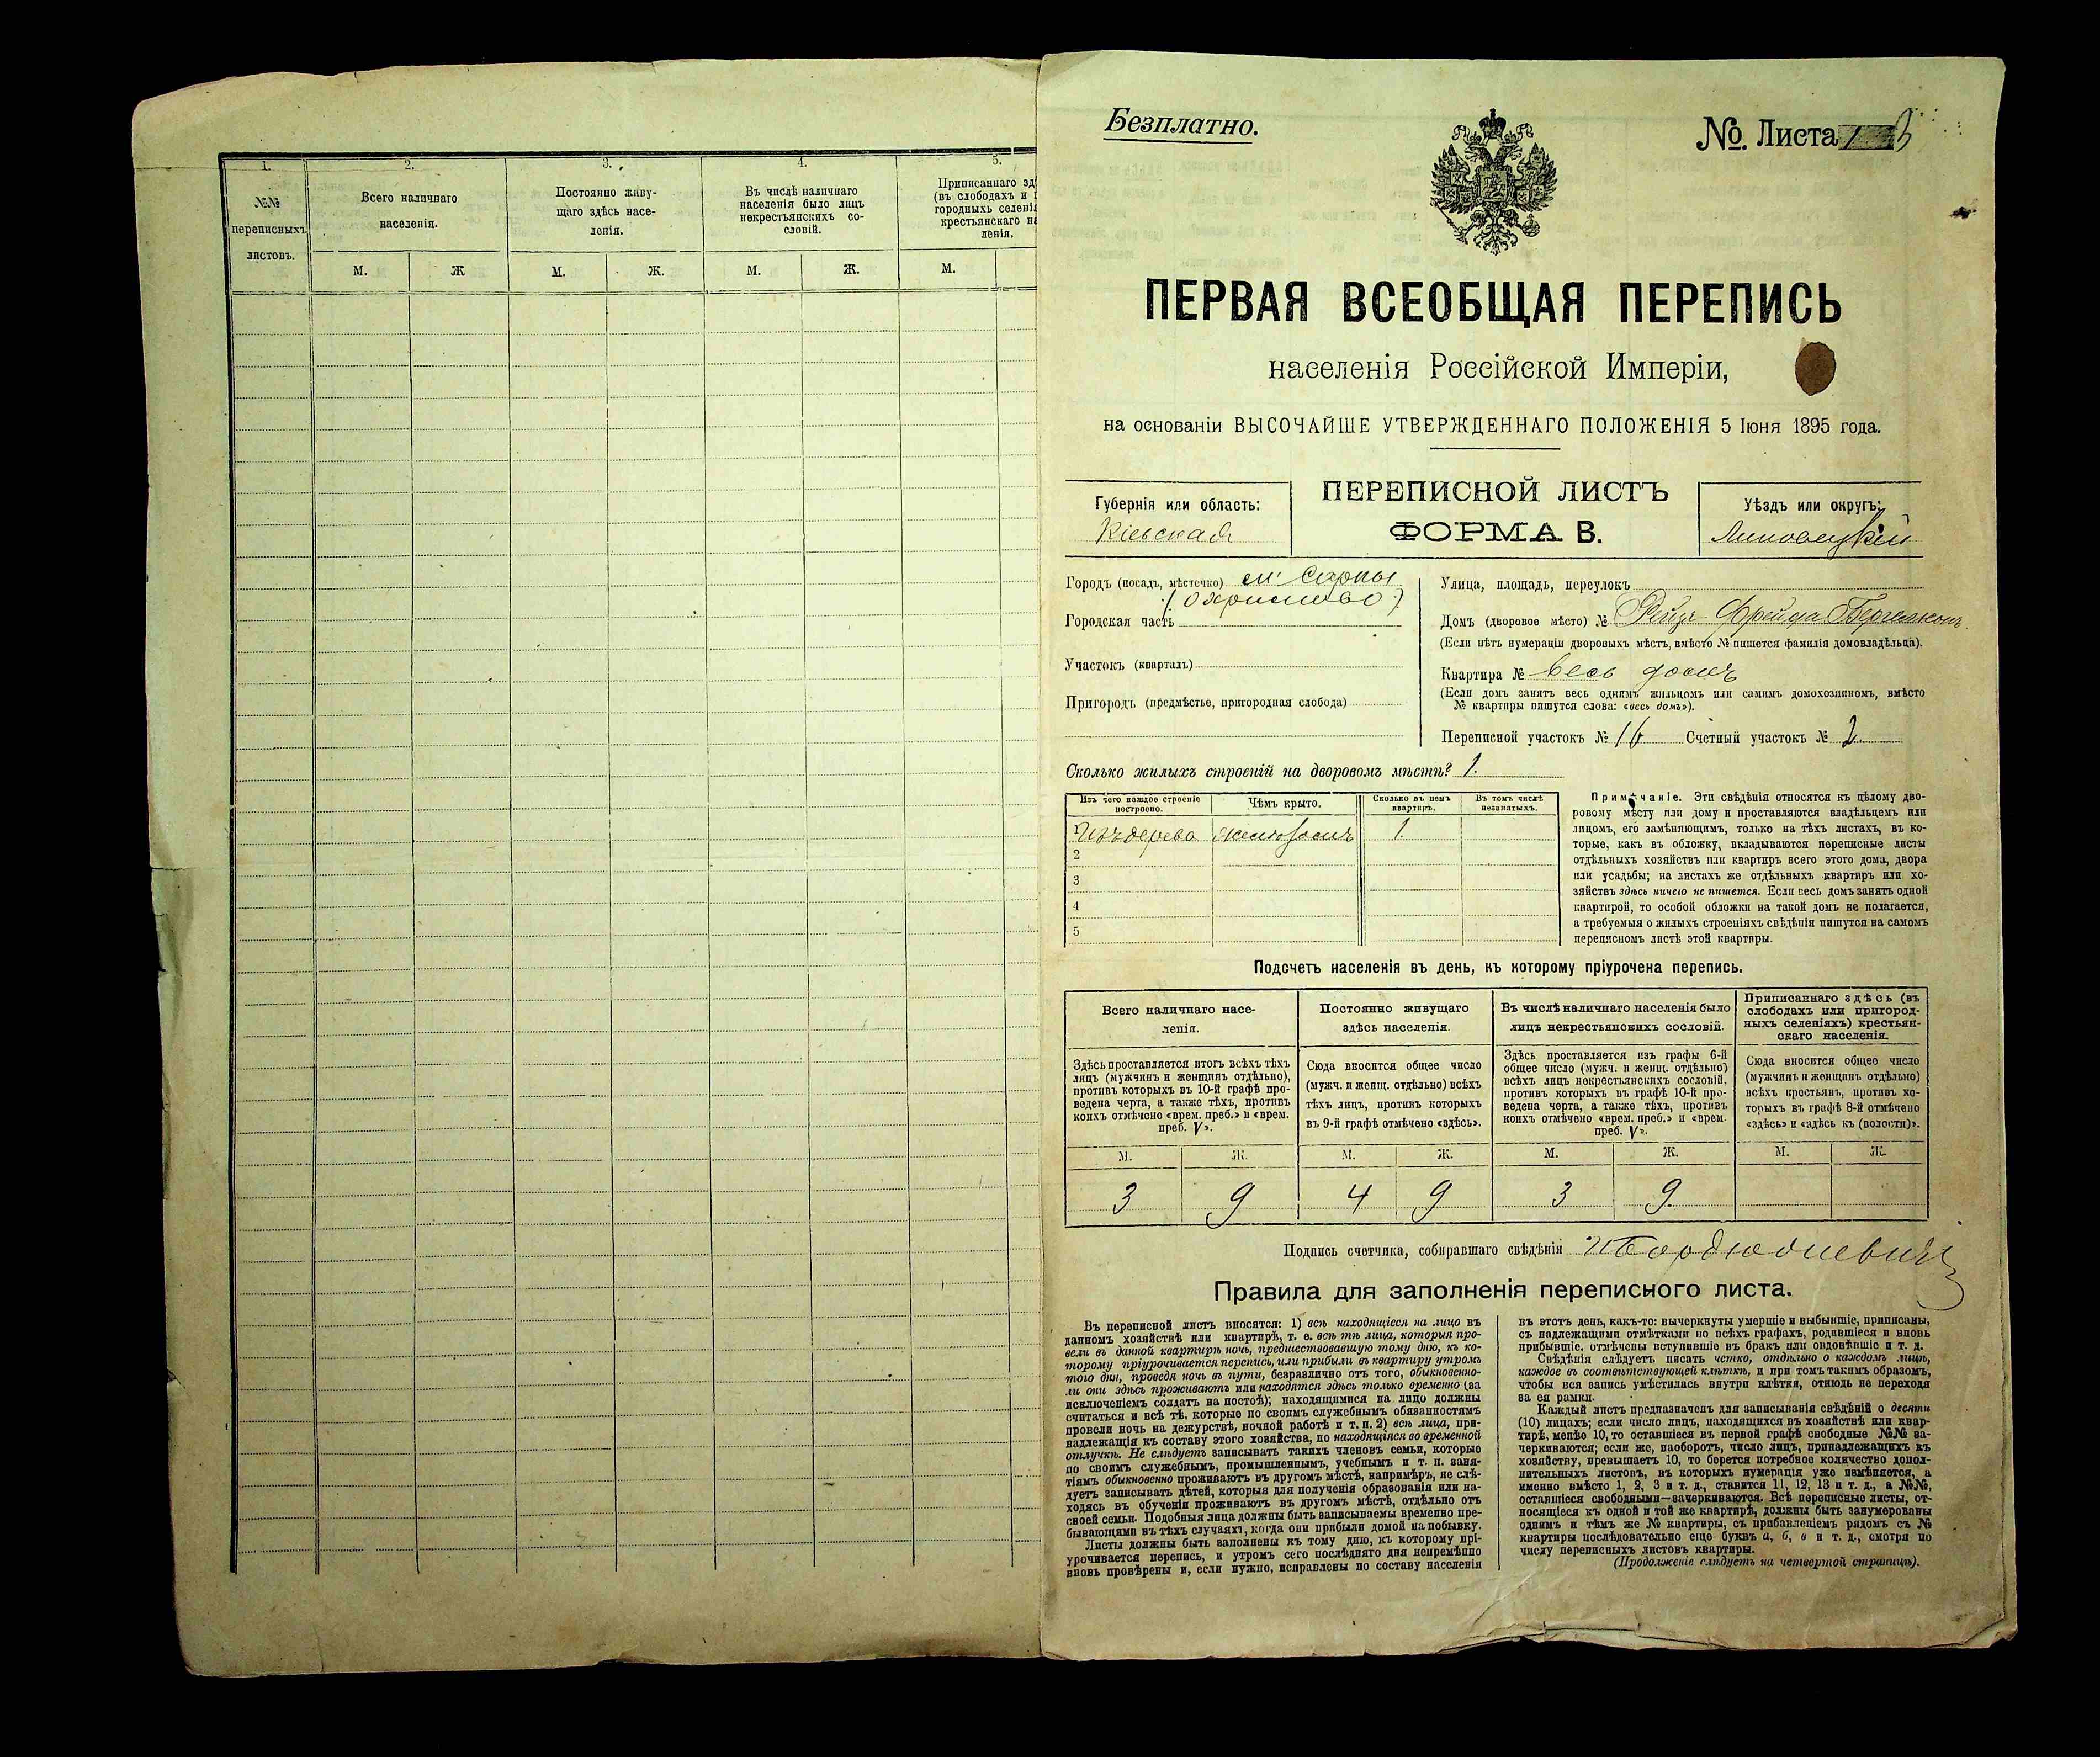 1.
№№
переписныхъ
листовъ.
2.
Всего наличнаго
населенія.
М.
Ж
3.
Постоянно живу-
щаго здѣсь насе-
ленія.
М.
Ж.
4.
Въ числѣ наличнаго
населенія было лицъ
некрестьянскихъ со-
словій.
М.
Ж.
5.
Приписаннаго
(въ слободахъ и
городныхъ
крестьянскаго
ленія.
М.
Безплатно.
№. Листа
ПЕРВАЯ ВСЕОБЩАЯ ПЕРЕПИСЬ
населенія Россійской Имперіи,
на основаніи ВЫСОЧАЙШЕ УТВЕРЖДЕННАГО ПОЛОЖЕНІЯ 5 Іюня 1895 года.
Губернія или область:
Кіевская
ПЕРЕПИСНОЙ ЛИСТЪ
ФОРМА В.
Уѣздъ или округъ:
Липовецкій
Городъ (посадъ, мѣстечко) м. Сарны
Городская часть
Участокъ (кварталъ)
Пригородъ (предмѣстье, пригородная слобода)
Улица, площадь, переулокъ
Домъ (дворовое мѣсто) №
(Если нѣтъ нумераціи дворовыхъ мѣстъ, вмѣсто № пишется фамилія домовладѣльца).
Квартира № весь домъ
(Если домъ занятъ весь однимъ жильцомъ или самимъ домохозяиномъ, вмѣсто
№ квартиры пишутся слова: «весь домъ»).
Переписной участокъ № 16 Счетный участокъ № 2
Сколько жилыхъ строеній на дворовомъ мѣстѣ? 1.
Изъ чего каждое строеніе
построено.
Чѣмъ крыто.
Сколько въ немъ
квартиръ.
Въ томъ числѣ
незанятыхъ.
1 Изъ дерева
1.
2
3
4
5
Примѣчаніе. Эти свѣдѣнія относятся къ цѣлому дво-
ровому мѣсту или дому и проставляются владѣльцемъ или
лицомъ, его замѣняющимъ, только на тѣхъ листахъ, въ ко-
торые, какъ въ обложку, вкладываются переписные листы
отдѣльныхъ хозяйствъ или квартиръ всего этого дома, двора
или усадьбы; на листахъ же отдѣльныхъ квартиръ или хо-
зяйствъ здѣсь ничего не пишется. Если весь домъ занятъ одной
квартирой, то особой обложки на такой домъ не полагается,
а требуемыя о жилыхъ строеніяхъ свѣдѣнія пишутся на самомъ
переписномъ листѣ этой квартиры.
Подсчетъ населенія въ день, къ которому пріурочена перепись.
Всего наличнаго насе-
ленія.
Здѣсь проставляется итогъ всѣхъ тѣхъ
лицъ (мужчинъ и женщинъ отдѣльно),
противъ которыхъ въ 10-й графѣ про-
ведена черта, а также тѣхъ, противъ
коихъ отмѣчено «врем. преб.» и «врем.
преб. V».
М.
Ж.
3
9
Постоянно живущаго
здѣсь населенія.
Сюда вносится общее число
(мужч. и женщ. отдѣльно) всѣхъ
тѣхъ лицъ, противъ которыхъ
въ 9-й графѣ отмѣчено «здѣсь».
М.
Ж.
4
9
Въ числѣ наличнаго населенія было
лицъ некрестьянскихъ сословій.
Здѣсь проставляется изъ графы 6-й
общее число (мужч. и женщ. отдѣльно)
всѣхъ лицъ некрестьянскихъ сословій,
противъ которыхъ въ графѣ 10-й про-
ведена черта, а также тѣхъ, противъ
коихъ отмѣчено «врем. преб.» и «врем.
преб. V».
М.
Ж.
3
9.
Приписаннаго здѣсь (въ
слободахъ или пригород-
ныхъ селеніяхъ) крестьян-
скаго населенія.
Сюда вносится общее число
(мужчинъ и женщинъ отдѣльно)
всѣхъ крестьянъ, противъ ко-
торыхъ въ графѣ 8-й отмѣчено
«здѣсь» и «здѣсь къ (волости)».
М.
Ж.
Подпись счетчика, собиравшаго свѣдѣнія
Правила для заполненія переписного листа.
Въ переписной листъ вносятся: 1) всѣ находящіеся на лицо въ
данномъ хозяйствѣ или квартирѣ, т. е. всѣ тѣ лица, которыя про-
вели въ данной квартирѣ ночь, предшествовавшую тому дню, къ ко-
торому пріурочивается перепись, или прибыли въ квартиру утромъ
того дня, проведя ночь въ пути, безразлично отъ того, обыкновенно-
ли они здѣсь проживаютъ или находятся здѣсь только временно (за
исключеніемъ солдатъ на постоѣ); находящимися на лицо должны
считаться и всѣ тѣ, которые по своимъ служебнымъ обязанностямъ
провели ночь на дежурствѣ, ночной работѣ и т. п. 2) всѣ лица, при-
надлежащія къ составу этого хозяйства, но находящіяся во временной
отлучкѣ. Не слѣдуетъ записывать такихъ членовъ семьи, которые
по своимъ служебнымъ, промышленнымъ, учебнымъ и т. п. заня-
тіямъ обыкновенно проживаютъ въ другомъ мѣстѣ, напримѣръ, не слѣ-
дуетъ записывать дѣтей, которыя для полученія образованія или на-
ходясь въ обученіи проживаютъ въ другомъ мѣстѣ, отдѣльно отъ
своей семьи. Подобныя лица должны быть записываемы временно пре-
бывающими въ тѣхъ случаяхъ, когда они прибыли домой на побывку.
Листы должны быть заполнены къ тому дню, къ которому прі-
урочивается перепись, и утромъ сего послѣдняго дня непремѣнно
вновь провѣрены и, если нужно, исправлены по составу населенія
въ этотъ день, какъ-то: вычеркнуты умершіе и выбывшіе, приписаны,
съ надлежащими отмѣтками во всѣхъ графахъ, родившіеся и вновь
прибывшіе, отмѣчены вступившіе въ бракъ или овдовѣвшіе и т. д.
Свѣдѣнія слѣдуетъ писать четко, отдѣльно о каждомъ лицѣ,
каждое въ соотвѣтствующей клѣткѣ, и при томъ такимъ образомъ,
чтобы вся запись умѣстилась внутри клѣтки, отнюдь не переходя
за ея рамки.
Каждый листъ предназначенъ для записыванія свѣдѣній о десяти
(10) лицахъ; если число лицъ, находящихся въ хозяйствѣ или квар-
тирѣ, менѣе 10, то оставшіеся въ первой графѣ свободные №№ за-
черкиваются; если же, наоборотъ, число лицъ, принадлежащихъ къ
хозяйству, превышаетъ 10, то берется потребное количество допол-
нительныхъ листовъ, въ которыхъ нумерація уже измѣняется, а
именно вмѣсто 1, 2, 3 и т. д., ставится 11, 12, 13 и т. д., а №№,
оставшіеся свободными—зачеркиваются. Всѣ переписные листы, от-
носящіеся къ одной и той же квартирѣ, должны быть занумерованы
однимъ и тѣмъ же № квартиры, съ прибавленіемъ рядомъ съ №
квартиры послѣдовательно еще буквъ а, б, в и т. д., смотря по
числу переписныхъ листовъ квартиры.
(Продолженіе слѣдуетъ на четвертой страницѣ).